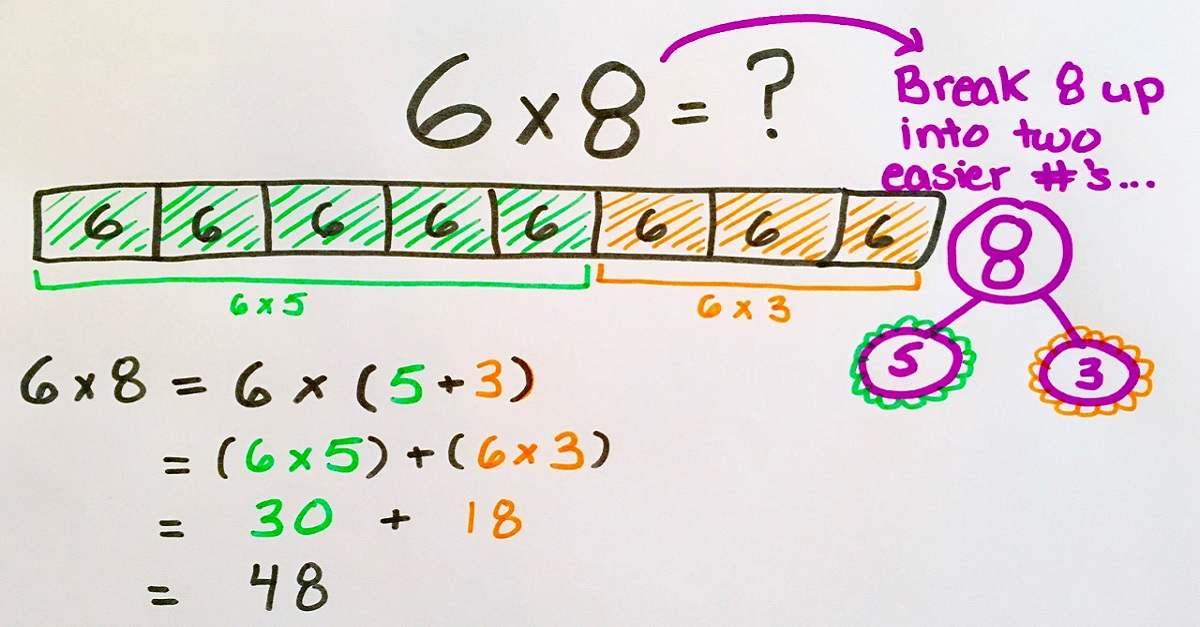 6 x 8 = ?
Break 8 up
into two
easier #'s...
6 6 6 6 6 6 6 6
6 x 5
6 x 3
8
5
3
6 x 8 = 6 x (5 + 3)
= (6 x 5) + (6 x 3)
= 30 + 18
= 48